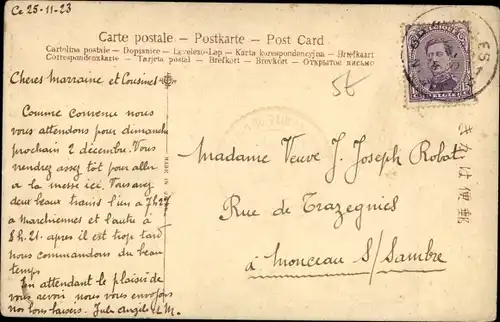 Ce 25-11-23
Carte postale – Postkarte – Post Card
Cartolina postale – Dopisnice – Levelezo-Lap – Karta korespondencyjna – Briefkaart
Correspondenzkarte – Tarjeta postal – Brefkort – Brevkort – Открытое письмо
BELGIQUE
15
BELGIE
ES
5t
Cheres Marraine et Cousines
Comme convenu nous
vous attendons pour dimanche
prochain 2 décembre. Vous
viendrez assez tôt pour aller
a la messe ici. Vous avez
deux beaux trains l'un a 7h27
a Marchiennes et l'autre à
8h.21. après il est trop tard
nous commandons du beau
temps.
En attendant le plaisir de
vous avoir nous vous envoyons
nos bons baisers. Jules Angèle et M.
MADE IN
Madame Veuve J. Joseph Robat
Rue de Trazegnies
à Monceau S/Sambre
きがは便郵